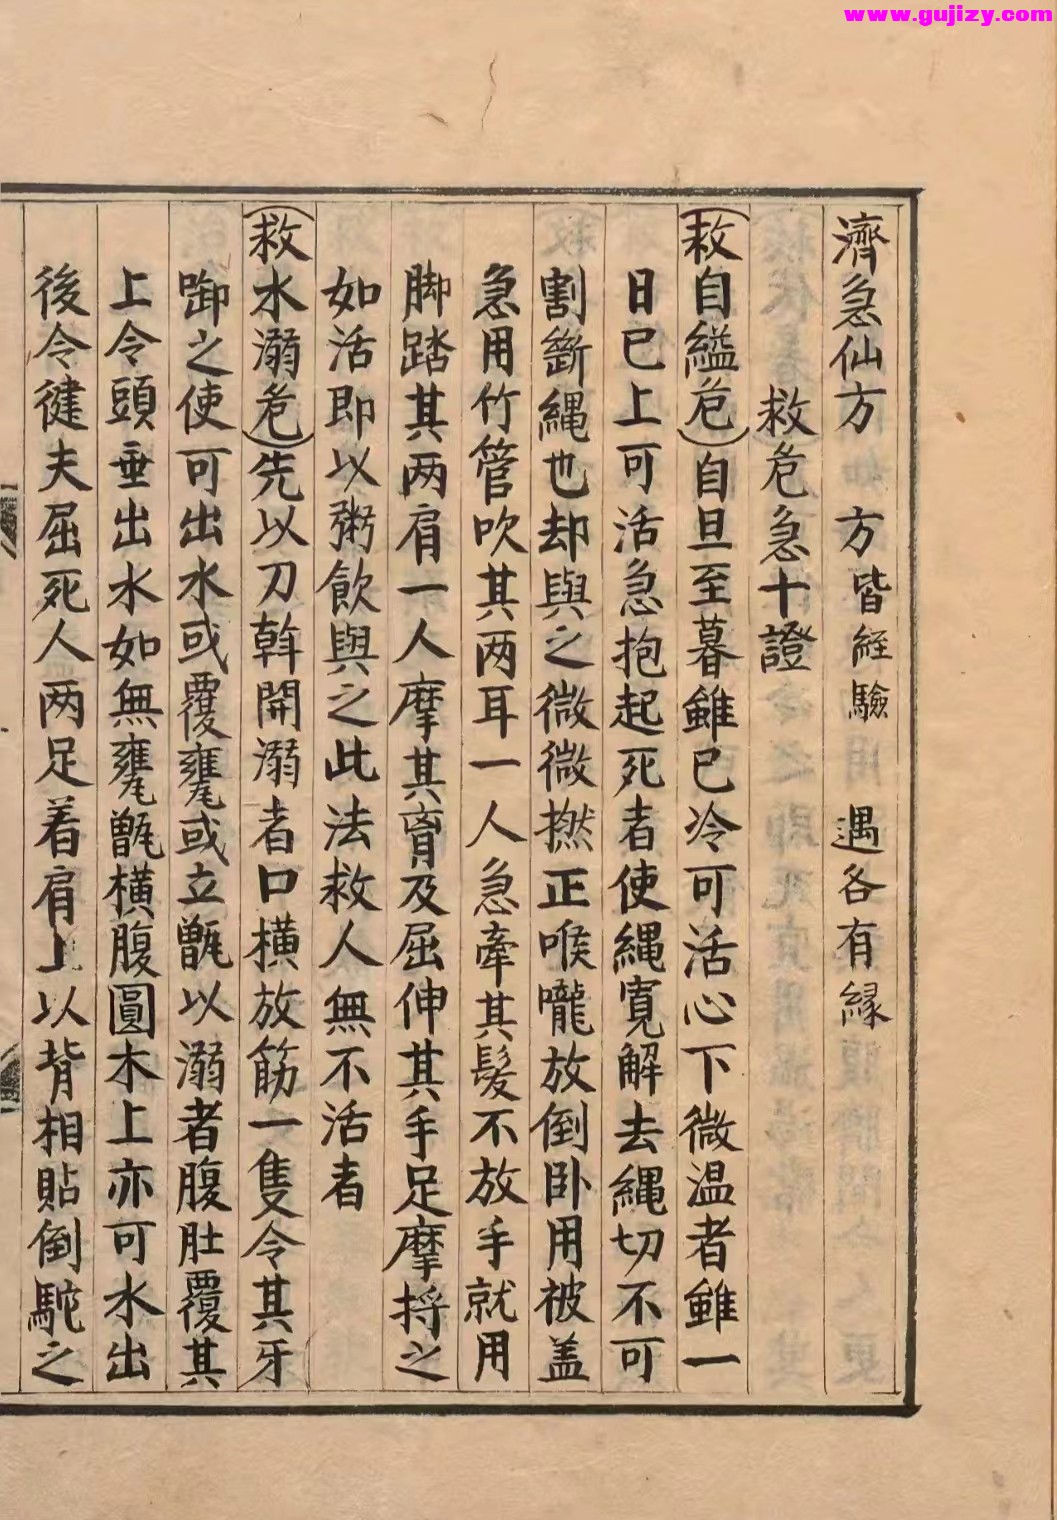 www.gujizy.com
濟急仙方 方皆經驗 遇各有緣
救危急十證
救自縊危自旦至暮雖已冷可活心下微温者雖一
日已上可活急抱起死者使縄寬解去縄切不可
割斷縄也却與之微微撚正喉嚨放倒卧用被盖
急用竹管吹其两耳一人急牽其髮不放手就用
脚踏其两肩一人摩其育及屈伸其手足摩捋之
如活即以粥飲與之此法救人無不活者
救水溺危先以刀斡開溺者口橫放筋一隻令其牙
啣之使可出水或覆甕或立甑以溺者腹肚覆其
上令頭垂出水如無甕甑橫腹圓木上亦可水出
後令健夫屈死人两足着肩上以背相貼倒駝之